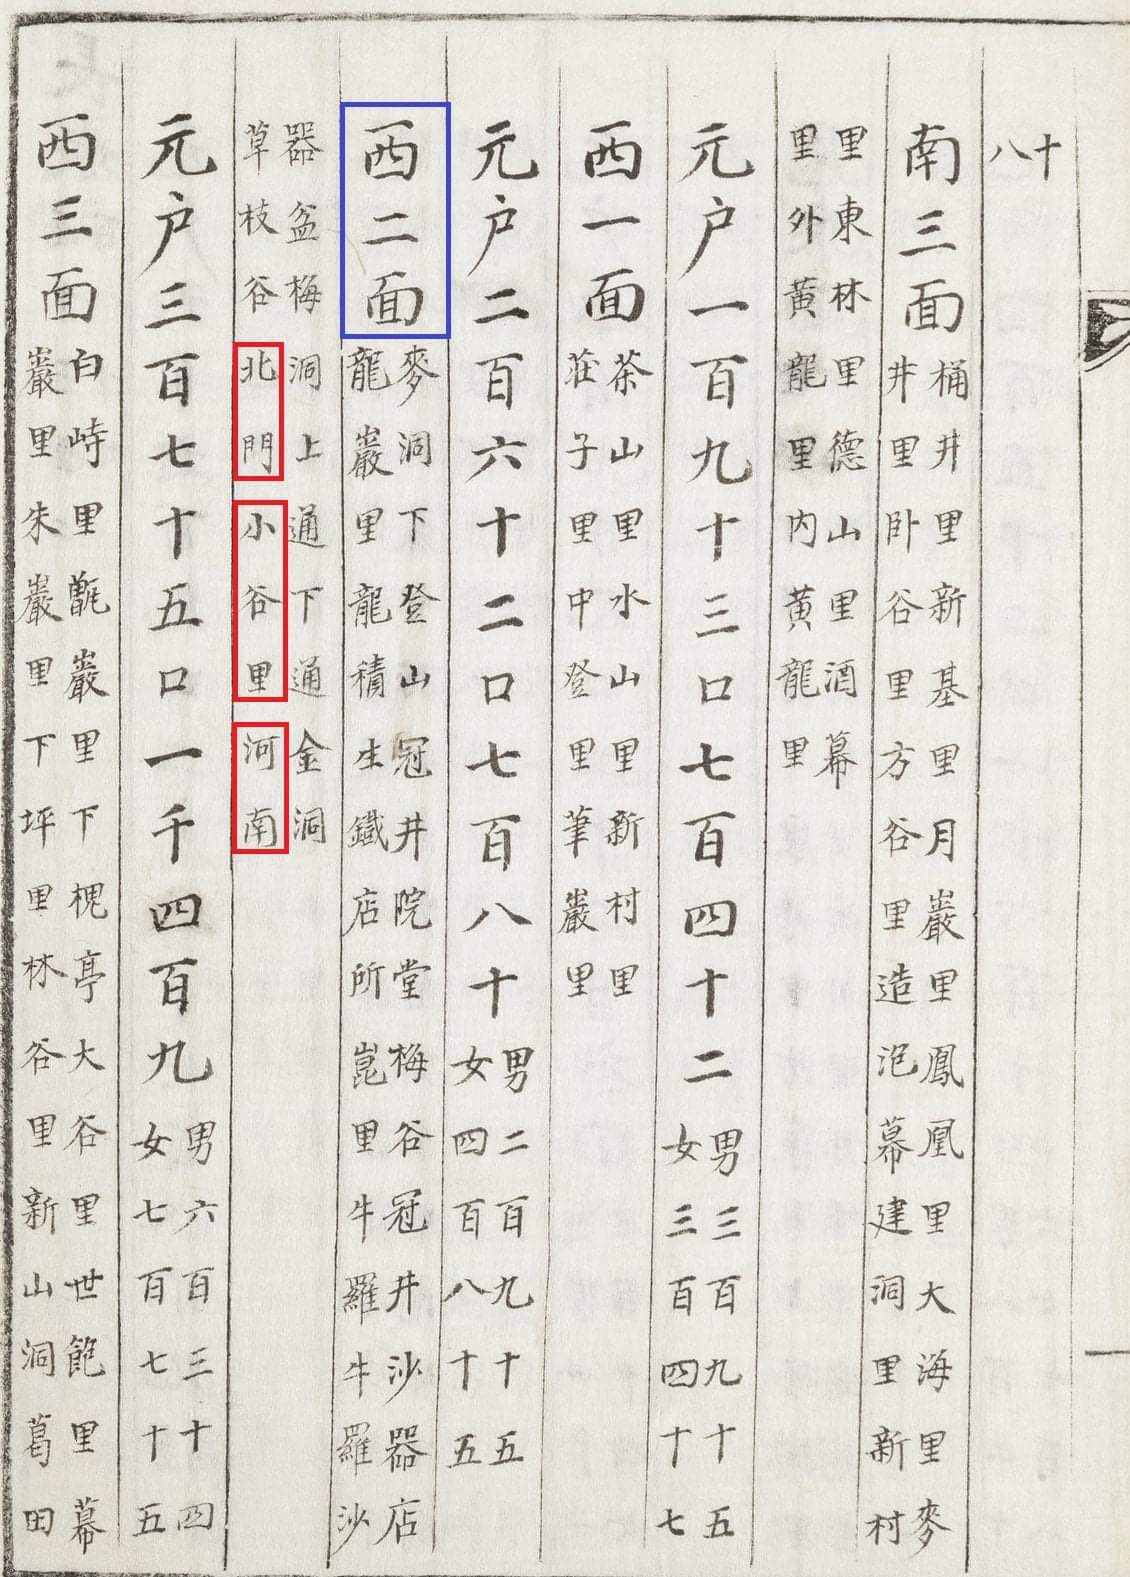 十
八
南三面
桶井里新基里月巖里鳳凰里大海里麥
井里卧谷里方谷里造泡幕建洞里新村
里東林里德山里酒幕
里外黃龍里内黃龍里
元户一百九十三口七百四十二
男三百九十五
女三百四十七
西一面
茶山里水山里新村里
荘子里中登里筆巖里
元户二百六十二口七百八十
男二百九十五
女四百八十五
西二面
麥洞下登山冠井院堂梅谷冠井沙器店
龍巖里龍積生鐵店所崑里牛羅牛羅沙
器盆梅洞上通下通金洞
草枝谷北門小谷里河南
元户三百七十五口一千四百九
男六百三十四
女七百七十五
西三面
白峙里甑巖里下槐亭大谷里世飽里幕
巖里朱巖里下坪里林谷里新山洞葛田